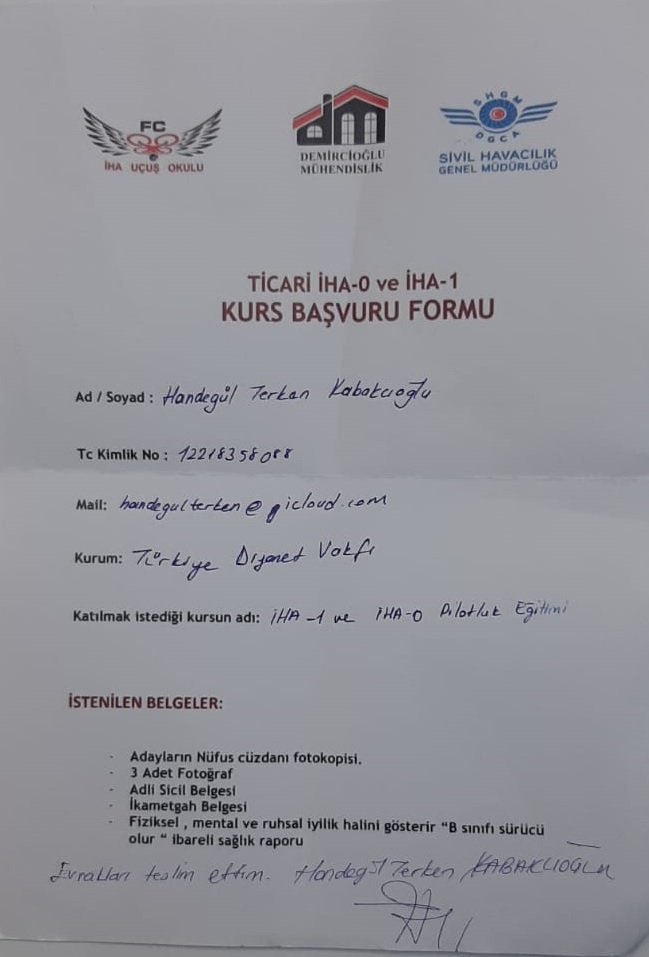 FC
İHA UÇUŞ OKULU
DEMİRCİOĞLU
MÜHENDİSLİK
SHGM
DGCA
SİVİL HAVACILIK
GENEL MÜDÜRLÜĞÜ
TİCARİ İHA-0 ve İHA-1
KURS BAŞVURU FORMU
Ad / Soyad : Handegül Terken Kabakcıoğlu
Tc Kimlik No : 12218358088
Mail: handegulterken@icloud.com
Kurum: Türkiye Diyanet Vakfı
Katılmak istediği kursun adı: İHA -1 ve İHA-0 Pilotluk Eğitimi
İSTENİLEN BELGELER:
- Adayların Nüfus cüzdanı fotokopisi.
- 3 Adet Fotoğraf
- Adli Sicil Belgesi
- İkametgah Belgesi
- Fiziksel , mental ve ruhsal iyilik halini gösterir “B sınıfı sürücü
olur “ ibareli sağlık raporu
Evrakları teslim ettim. Handegül Terken KABAKCIOĞLU